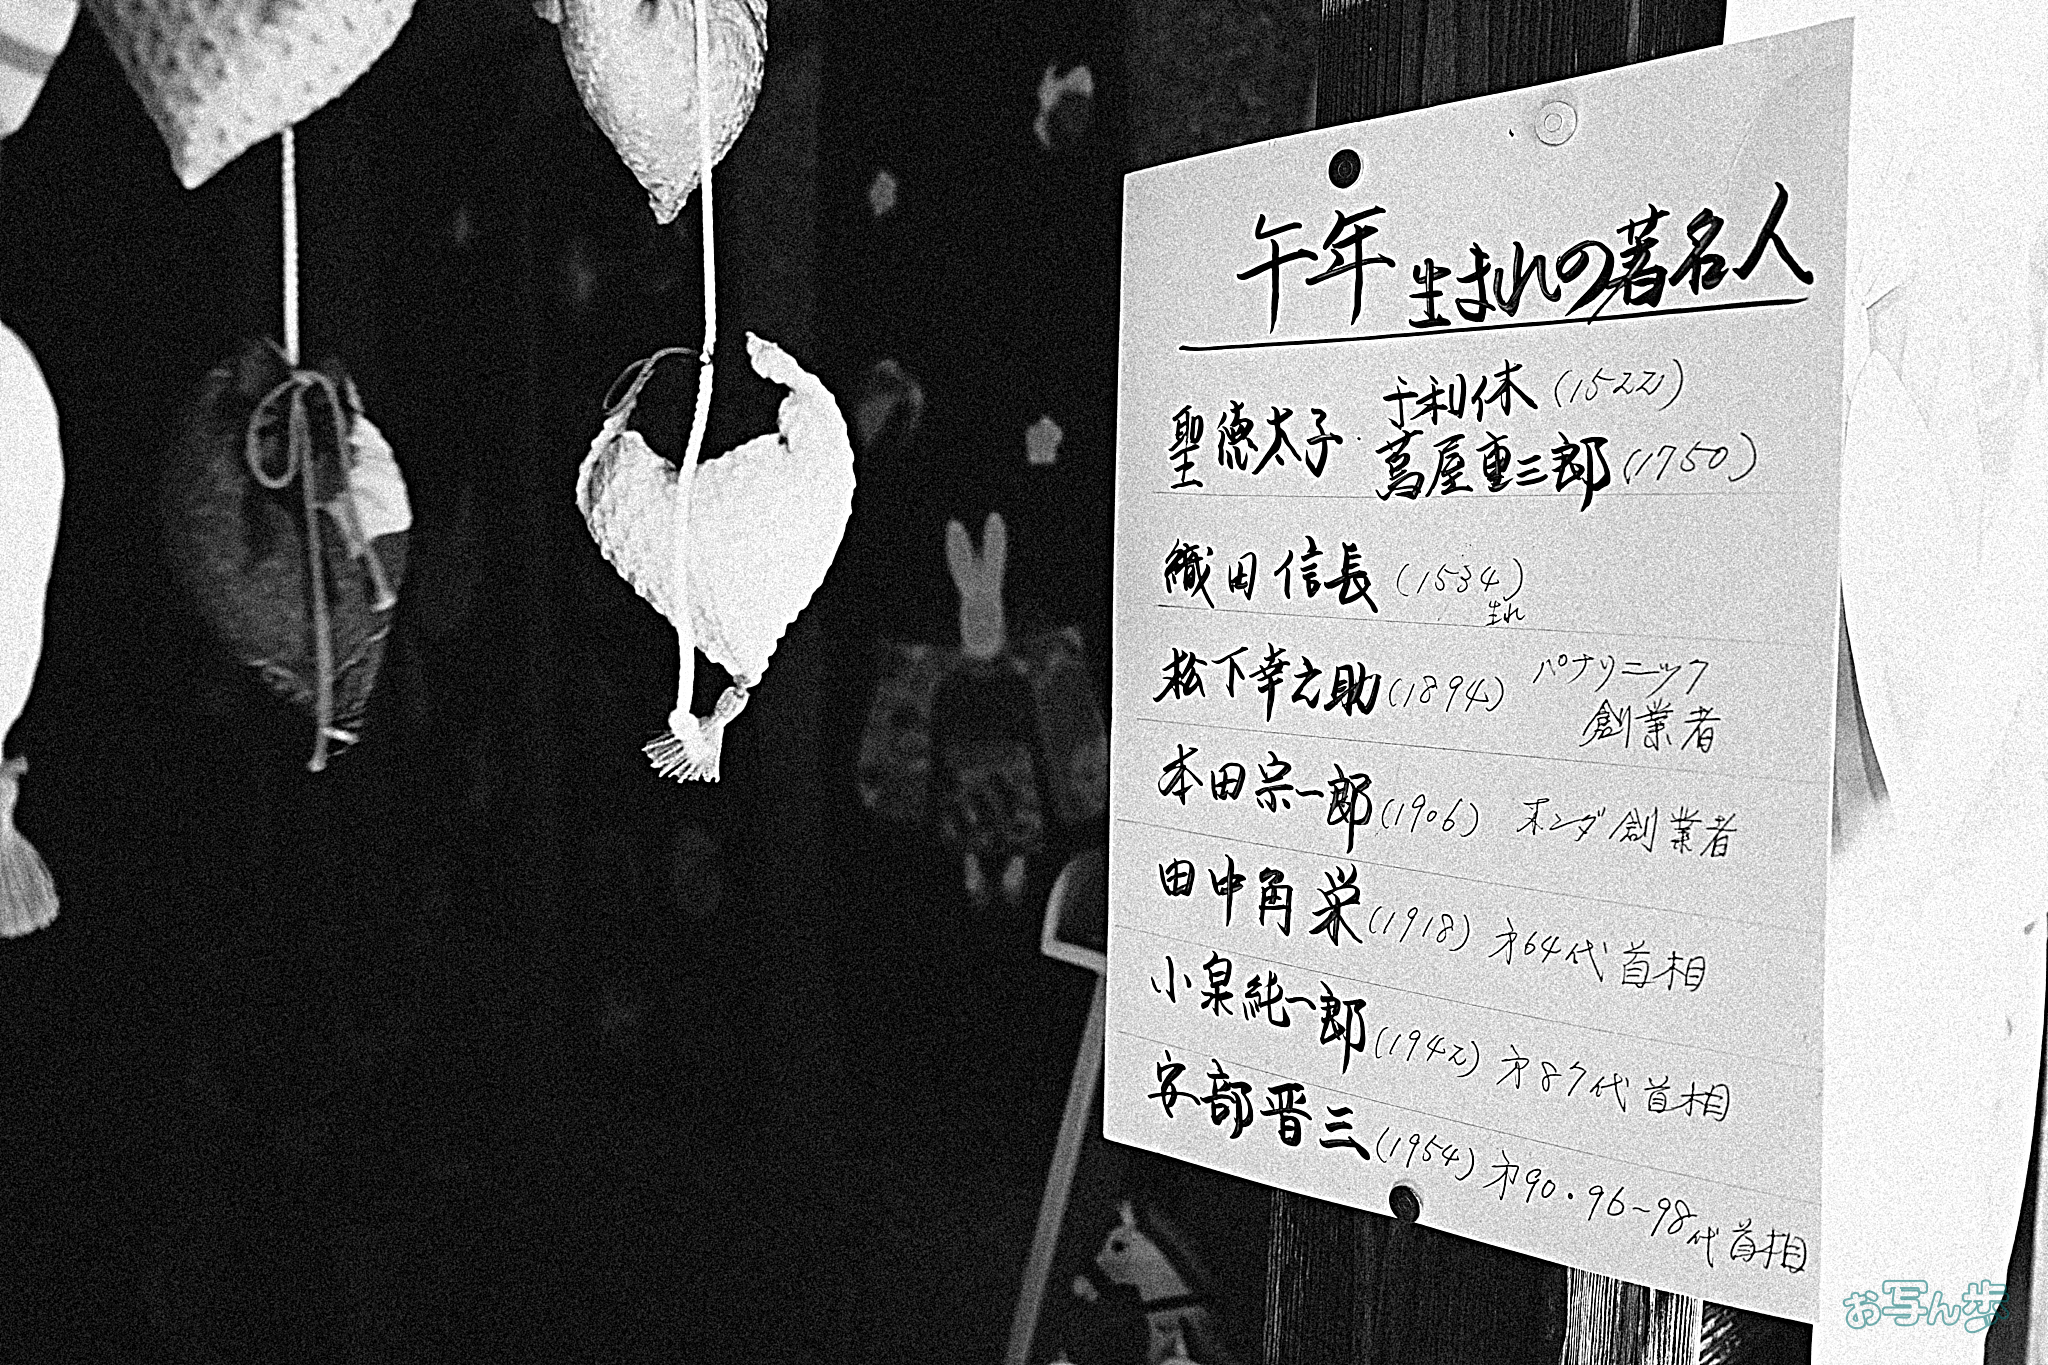 午年生まれの著名人
聖徳太子 千利休(1522)
蔦屋重三郎(1750)
織田信長(1534)
生れ
松下幸之助(1894) パナソニック
創業者
本田宗一郎(1906) ホンダ創業者
田中角栄(1918) 才64代首相
小泉純一郎(1942) 才87代首相
安部晋三(1954) 才90・96~98代首相
お写ん歩